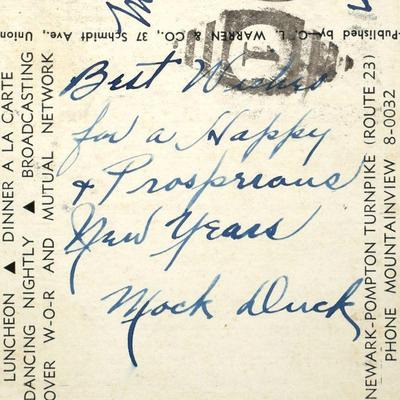 -Published by G. L. WARREN & CO., 37 Schmidt Ave., Union
LUNCHEON ▲ DINNER A LA CARTE
DANCING NIGHTLY ▲ BROADCASTING
OVER W-O-R AND MUTUAL NETWORK
Best Wishes
for a Happy
& Prosperious
New Years
Mock Duck
NEWARK-POMPTON TURNPIKE (ROUTE 23)
PHONE MOUNTAINVIEW 8-0032